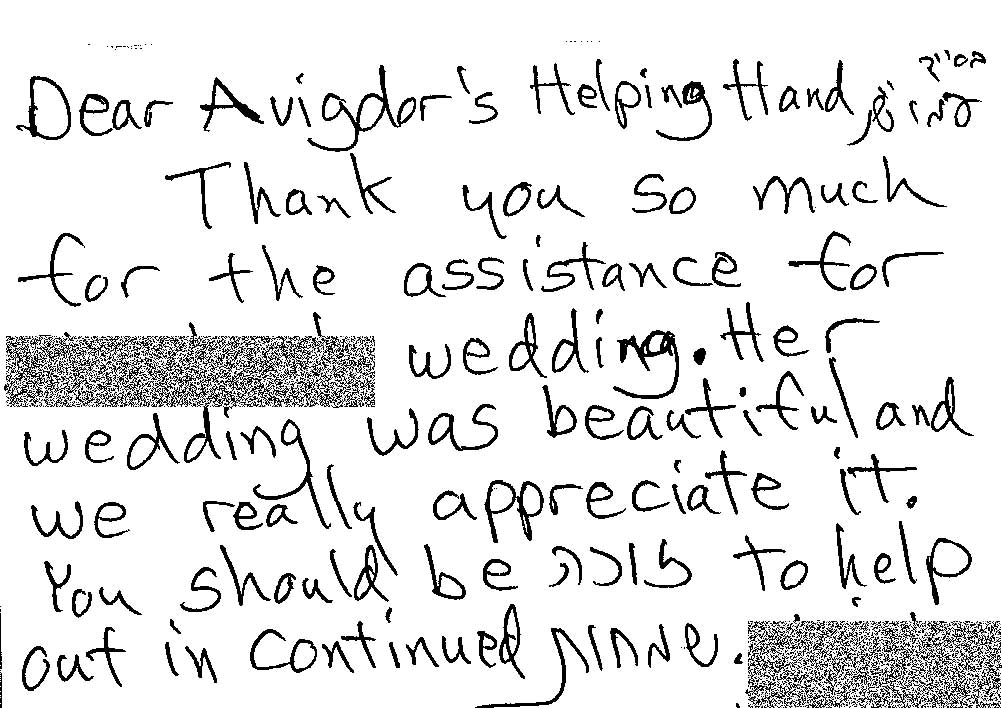 בס"ד
Dear Avigdor's Helping Hand,
Thank you so much
for the assistance for
wedding. Her
wedding was beautiful and
we really appreciate it.
You should be זוכה to help
out in continued שמחות.